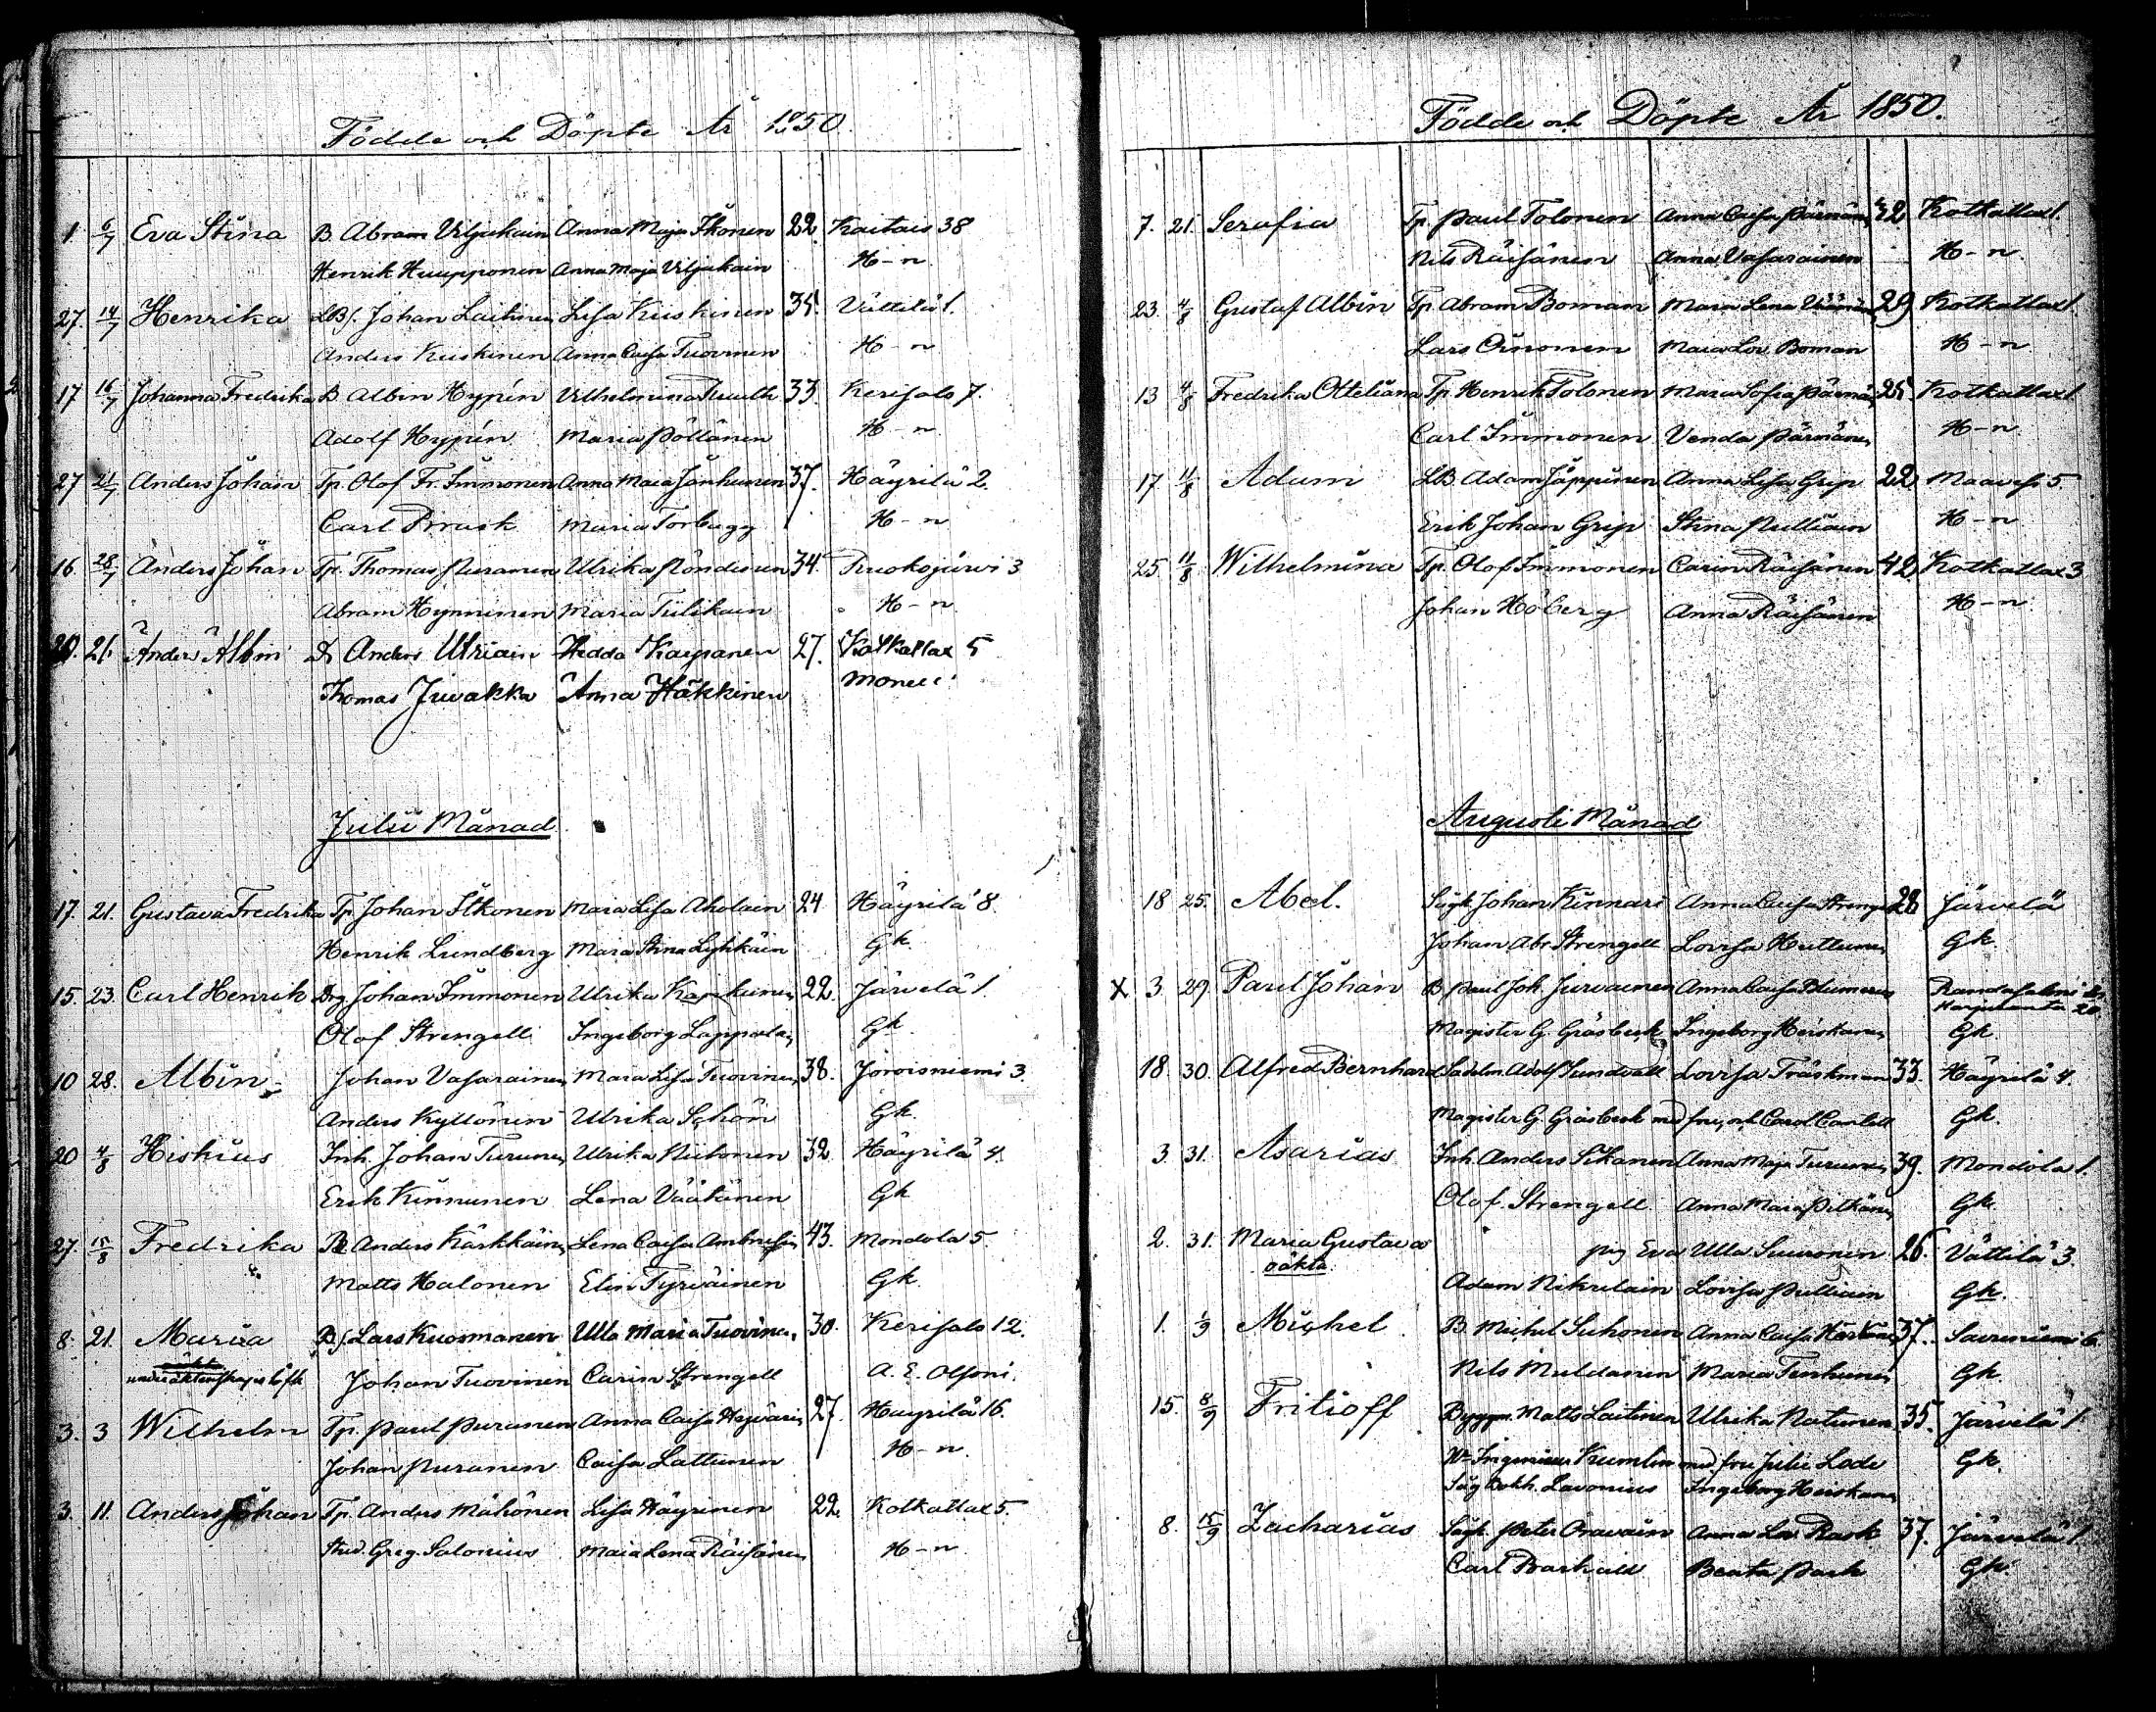 Födde och Döpte År 1850.
1. 6/7 Eva Stina B. Abram Viljakain Anna Maja Ikonen 22. Kaitais 38
Henrik Huupponen Anna Maja Viljakain H-n.
27. 14/7 Henrika LBf. Johan Laitinen Lisa Kiiskinen 35. Vättilä 1.
Anders Kiiskinen Anna Caisa Tuovinen H-n
17 16/7 Johanna Fredrika B. Albin Hypén Vilhelmina Tuulli 33. Kerisalo 7.
Adolf Hypén Maria Pöllänen H-n.
27 21/7 Anders Johan Tp. Olof Fr. Immonen Anna Maia Jänhunen 37. Häyrilä 2.
Carl Prusk Maria Torbugg H-n
16. 28/7 Anders Johan Tp. Thomas Puranen Ulrika Pöndinen 34. Ruokojärvi 3
Abram Hynninen Maria Tiilikain H-n.
20. 21. Anders Albin D. Anders Ulriain Hedda Kaipanen 27. Kotkallax 5
Thomas Juvakka Anna Häkkinen
Julii Månad
17. 21. Gustava Fredrika Tp. Johan Itkonen Maia Lisa Aholain 24 Häyrilä 8.
Henrik Lundberg Maia Stina Lyhkäin Gk.
15. 23. Carl Henrik Drg Johan Immonen Ulrika 22. Järvelä 1.
Olof Strengell Ingeborg Lappalain Gk.
10 28. Albin Johan Vasarainen Maia Lisa Tuovinen 38. Joroisniemi 3.
Anders Kyllönen Ulrika Schön Gk.
20 4/8 Hiskias Inh. Johan Turunen Ulrika Niihonen 32. Häyrilä 4.
Erik Kinnunen Lena Väätänen Gk
27. 15/8 Fredrika B. Anders Kärkkäinen Lena Caisa 43. Mondola 5.
Matts Halonen Elin Tyrväinen Gk.
8. 21. Maria Bf. Lars Kuosmanen Ulla Maria Tuovinen 30. Kerisalo 12.
Johan Tuovinen Carin Strengell A. E. Olsoni.
3. 3 Wilhelm Tp. Paul Puranen Anna Caisa 27. Häyrilä 16.
Johan Puranen Caisa Lattunen H-n.
3. 11. Anders Johan Tp. Anders Mähönen Lisa Häyrinen 22. Kotkallax 5.
Stud. Greg. Salonius Maia Lena Räisänen H-n.
Födde och Döpte År 1850.
7. 21. Serafia Tp. Paul Tolonen Anna Caisa Pärnänen 32 Kotkallax 1.
Nils Räisänen Anna Vasarainen H-n.
23. 4/8 Gustaf Albin Tp. Abram Boman Maia Lena 29 Kotkallax 1.
Lars Oinonen Maia Lov. Boman H-n.
13 4/8 Fredrika Otteliana Tp. Henrik Tolonen Maia Sofia Pärnänen 25 Kotkallax 1.
Carl Immonen Venda Pärnänen H-n.
17. 11/8 Adam LB. Adam Jäppinen Anna Lisa Grip 22 Maavesi 5.
Erik Johan Grip Stina Pulliain H-n
25. 11/8 Wilhelmina Tp. Olof Immonen Carin Räisänen 42 Kotkallax 3
Johan Höberg Anna Räisänen H-n
Augusti Månad
18 25. Abel. Sågk. Johan Kinnari Anna Caisa Strengell 28 Järvelä
Johan Abr. Strengell Lovisa Huttunen Gk.
X 3. 29. Paul Johan B. Paul Joh. Jurvainen Anna Caisa Randasalmi
Magister G. Gräsbeck Ingeborg Heiskanen Gk.
18. 30. Alfred Bernhard Sadelm. Adolf Sundvall Lovisa Träskman 33. Häyrilä 4.
Magister G. Gräsbeck med fru, och Carol. Cantell Gk.
3. 31. Asarias Inh. Anders Sikanen Anna Maja Turunen 39. Mondola 1.
Olof Strengell Anna Maia Pitkänen Gk.
2. 31. Maria Gustava pig. Eva Ulla Suuronen 26. Vättilä 3.
oäkta. Adam Nikulain Lovisa Pulliain Gk.
1. 1/9 Michel B. Michel Suhonen Anna Caisa 37. Savuniemi 6.
Nils Muldanen Maria Tenhunen Gk.
15. 8/9 Fritioff Byggm. Matts Laitinen Ulrika Natunen 35. Järvelä 1.
Hr Ingenieur Krumlin med fru Julie Lode Gk.
Såg Bokh. Lavonius Ingeborg Heiskanen
8. 15/9 Zacharias Sågk. Peter Oravain Anna Lov. Rask 37. Järvelä 1.
Carl Beata Park Gk.